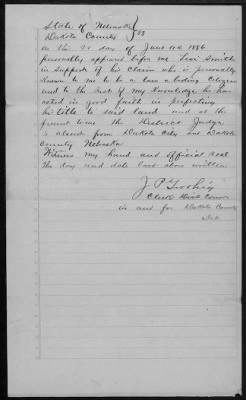 State of Nebraska
Dakota County } SS
On this 21 day of June A.D. 1886
personally appeared before me Levi Smith
in support of his claim who is personally
known to me to be a law abiding Citizen
and to the best of my knowledge he has
acted in good faith in perfecting
his title to said land and at the
present time the Judge
is absent from Dakota City and Dakota
County Nebraska
Witness my hand and official seal
the day and date last above written
J. P.
Clerk Court
in and for Dakota County
Neb